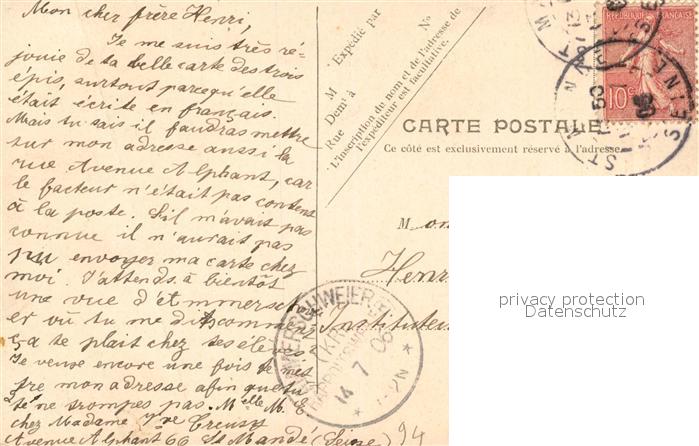 Mon cher frère Henri,
Je me suis très ré-
jouie de ta belle carte des trois
épis, surtout parcequ'elle
était écrite en français.
Mais tu sais il faudras mettre
sur mon adresse aussi la
rue Avenue Alphant, car
le facteur n'était pas content
à la poste. S'il m'avait pas
connue il n'aurait pas
pu envoyer ma carte chez
moi. J'attends à bientôt
une vue d'Ammersch
er où tu me dis commen
ça te plait chez ses élèves
Je veuse encore une fois te met-
tre mon adresse afin que tu
te ne trompes pas. Melle M. E
chez Madame Vve Creusy
Avenue Alphant 66 St Mandé (Seine)
Expédié par
M
No
Demi à
Rue
L'inscription du nom et de l'adresse de
l'expéditeur est facultative.
REPUBLIQUE FRANÇAISE
10c
SEINE
CARTE POSTALE
Ce côté est exclusivement réservé à l'adresse
Mon
Henr
Instituteu
AMMERSCHWEIER
(KR.
RAPPOLTSWEILER)
14 7 06
privacy protection
Datenschutz
94